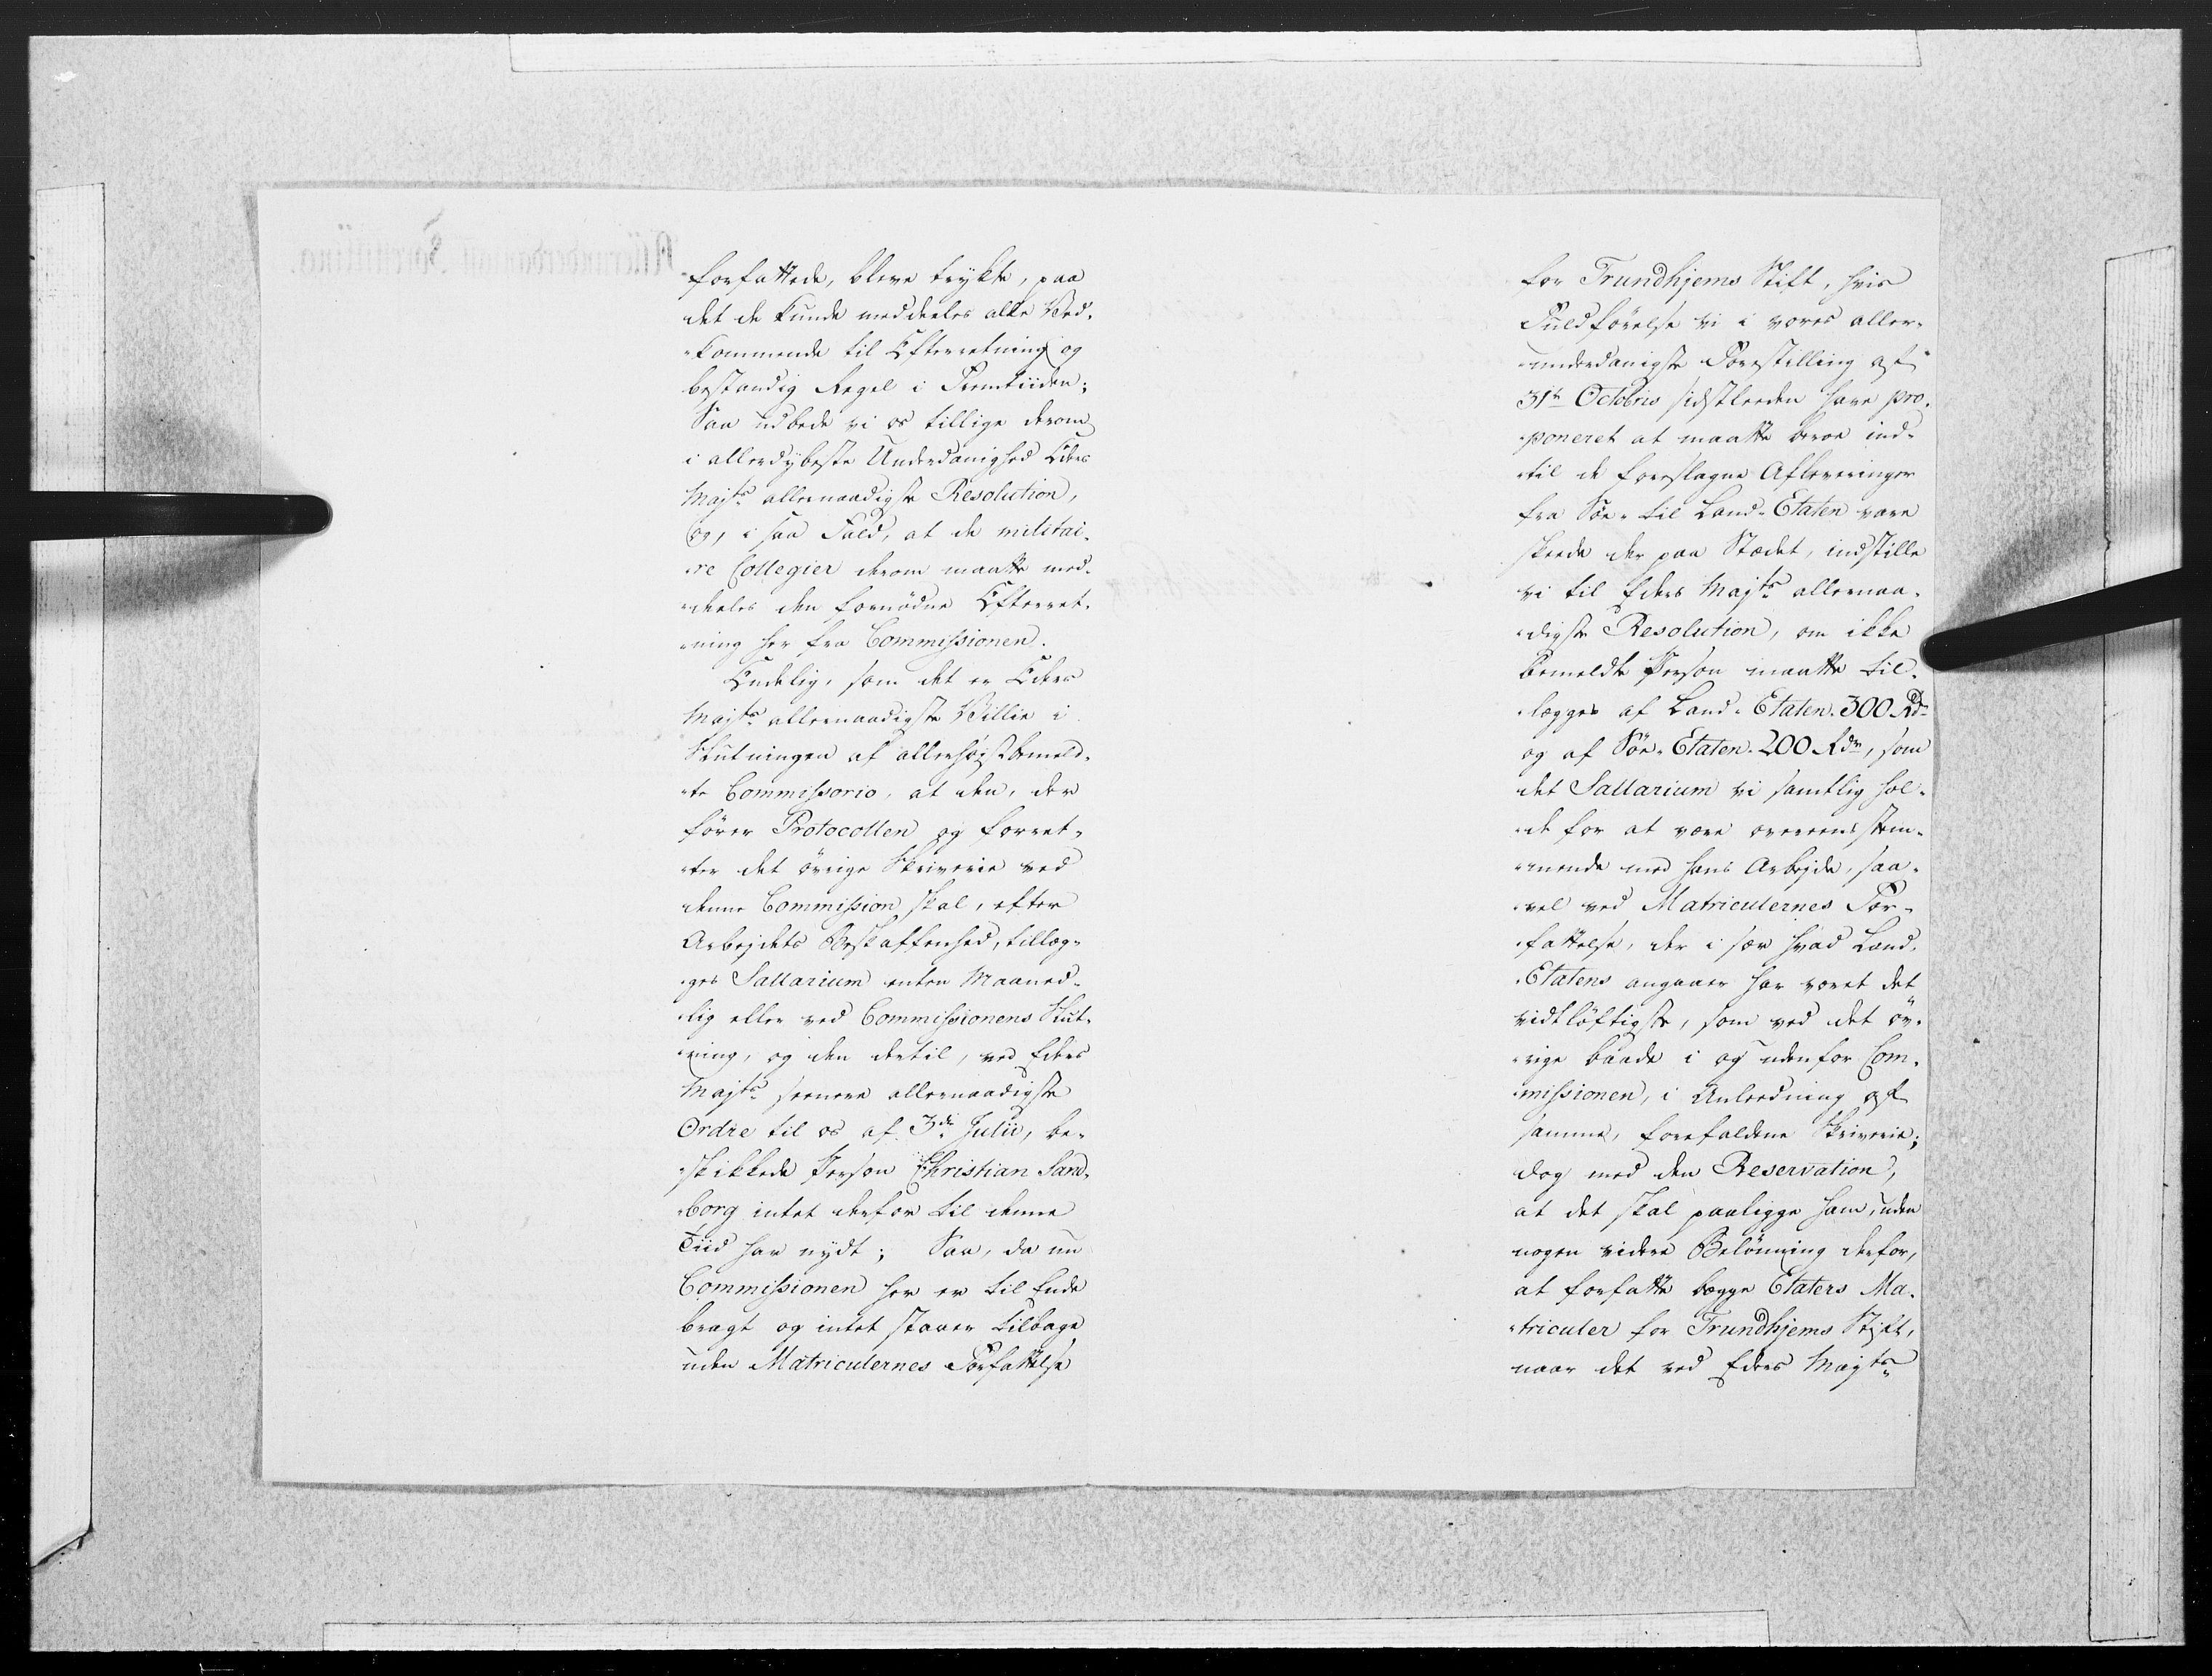 forfattede, bleve trykte, paa
det de kunde meddeeles alle Ved-
-kommende til Efterretning og
bestandig Regel i Fremtiiden;
Saa udbede vi os tillige derom
i allerdybeste Underdanighed Eders
Majts. allernaadigste Resolution,
Og, i saa Fald, at de militai-
-re Collegier derom maatte med-
-deeles den fornødne Efterret-
-ning her fra Commissionen.
Endelig, som det er Eders
Majts. allernaadigste Villie i
Slutningen af allerhøistbemeld-
-te Commissorio, at den, der
fører Protocollen og forret-
-ter det øvrige Skriverie ved
denne Commission skal, efter
Arbejdets Beskaffenhed, tillæg-
-ges Sallarium enten Maaned-
-lig eller ved Commissionens Slut-
-ning, og den dertil, ved Eders
Majts. seenere allernaadigste
Ordre til os af 3die Julii, be-
-skikkede Person Christian Sand-
-borg intet derfor til denne
Tiid har nydt; Saa, da nu
Commissionen her er til Ende
bragt og intet staaer tilbage
uden Matriculernes Forfattelse
for Trundhjems Stift, hvis
Fuldførelse vi i vores aller-
-underdanigste Forestilling af
31te Octobris sidstleeden have pro-
-poneret at maatte beroe ind-
-til de foreslagne Afleveringer
fra Søe- til Land-Etaten vare
skeede der paa Stædet, indstille
vi til Eders Majts. allernaa-
-digste Resolution, om ikke
bemeldte Person maatte til-
-lægges af Land-Etaten 300 Rdr
og af Søe-Etaten 200 Rdr, som
det Sallarium vi samtlig hol-
-de for at være overeensstem-
-mende med hans Arbejde, saa-
-vel ved Matriculernes For-
-fattelse, der i sær hvad Land-
-Etatens angaaer har været det
vidtløftigste, som ved det øv-
-rige baade i og uden for Com-
-missionen, i Anledning af
samme, forefaldene Skriverie;
dog med den Reservation,
at det skal paaligge ham, uden
nogen videre Belønning derfor,
at forfatte begge Etaters Ma-
-triculer for Trundhjems Stift,
naar det ved Eders Majts.